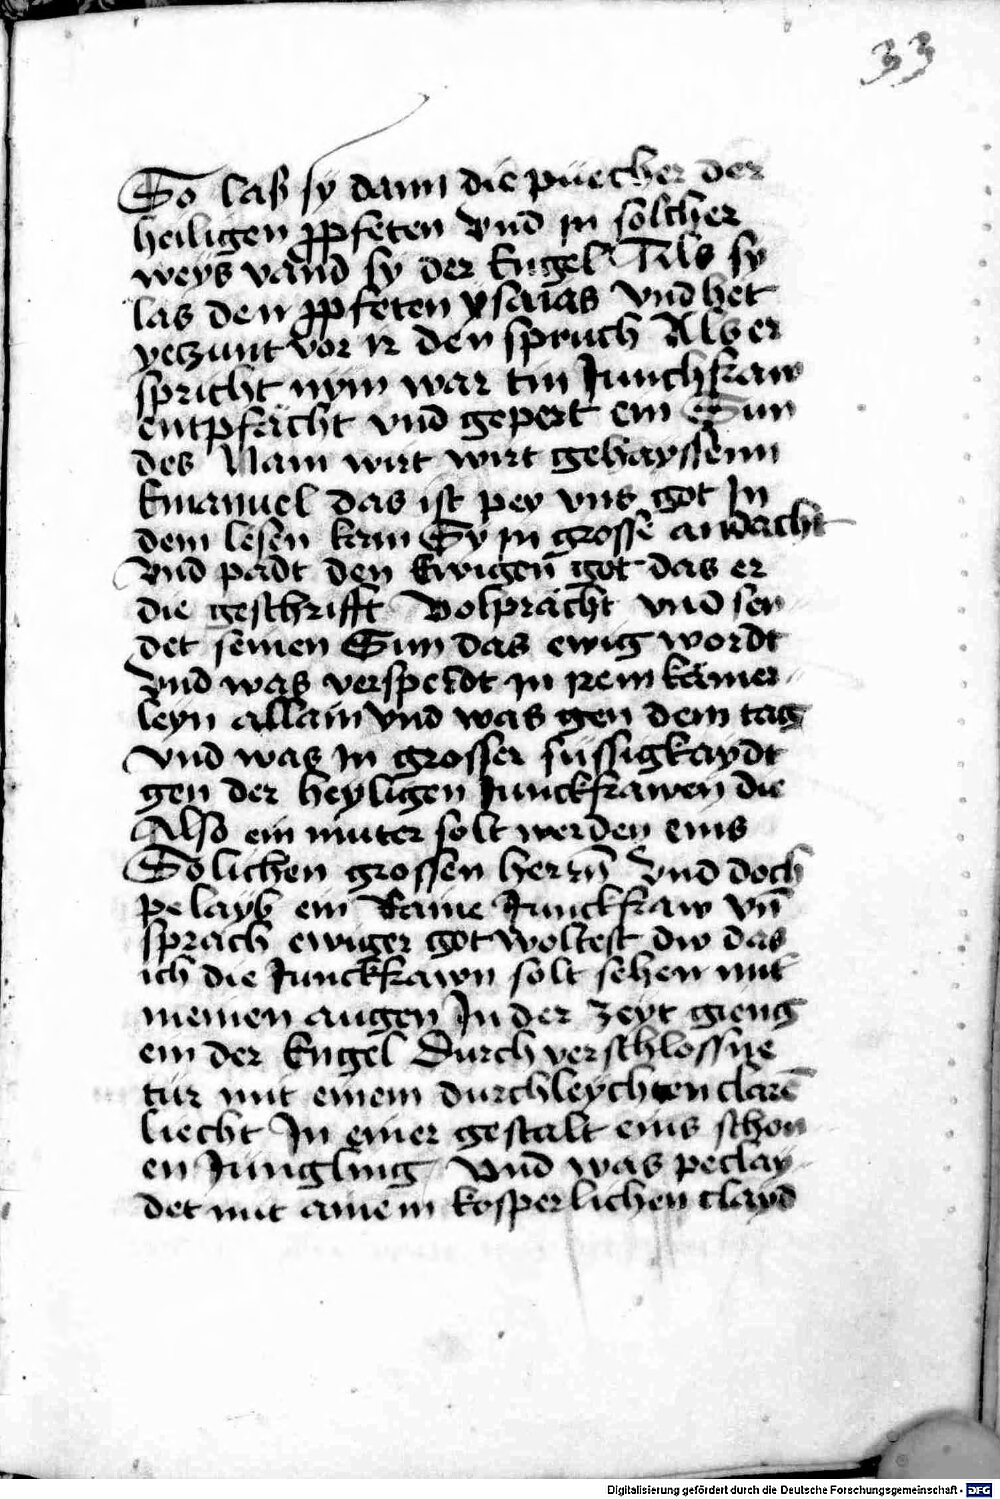 33
So laß sy dann die püecher der
heiligen ꝓpfeten Vnd in solcher
weys vand sy der Engel Als sy
las den ꝓpfeten ysaias Vnd het
yeczunt vor ir den spruch Als er
spricht nym war ein Junchfraw
entpfächt vnd gepert ein Sun
des Nam wirt wirt gehayssenn
Emanuel das ist pey vns got In
dem lesen kam Sy in grosse andacht
Vnd padt den Ewigen̄ got das er
die geschrifft Volprächt vnd sen
det seinen Sun das ewig wordt
Vnd was versperdt in irem kämer
leyn allain vnd was gen dem tag
Vnd was In grosser süssigkaydt
gen der heyligen Junckfrawen die
Also ein muter solt werden eins
Solichen grossen herrn̄ Vnd doch
pelayb ein Raine Junckfraw vn̄
sprach ewiger got woltest dw das
ich die Junckfrawn solt sehen mit
meinen augen In der zeyt gieng
ein der Engel Durch verschlossne
tür mit einem durchleychten clarē
liecht In einer gestalt eins schon
en Jüngling Vnd was peclay
det mit ainem kosperlichen clayd
Digitalisierung gefördert durch die Deutsche Forschungsgemeinschaft - DFG